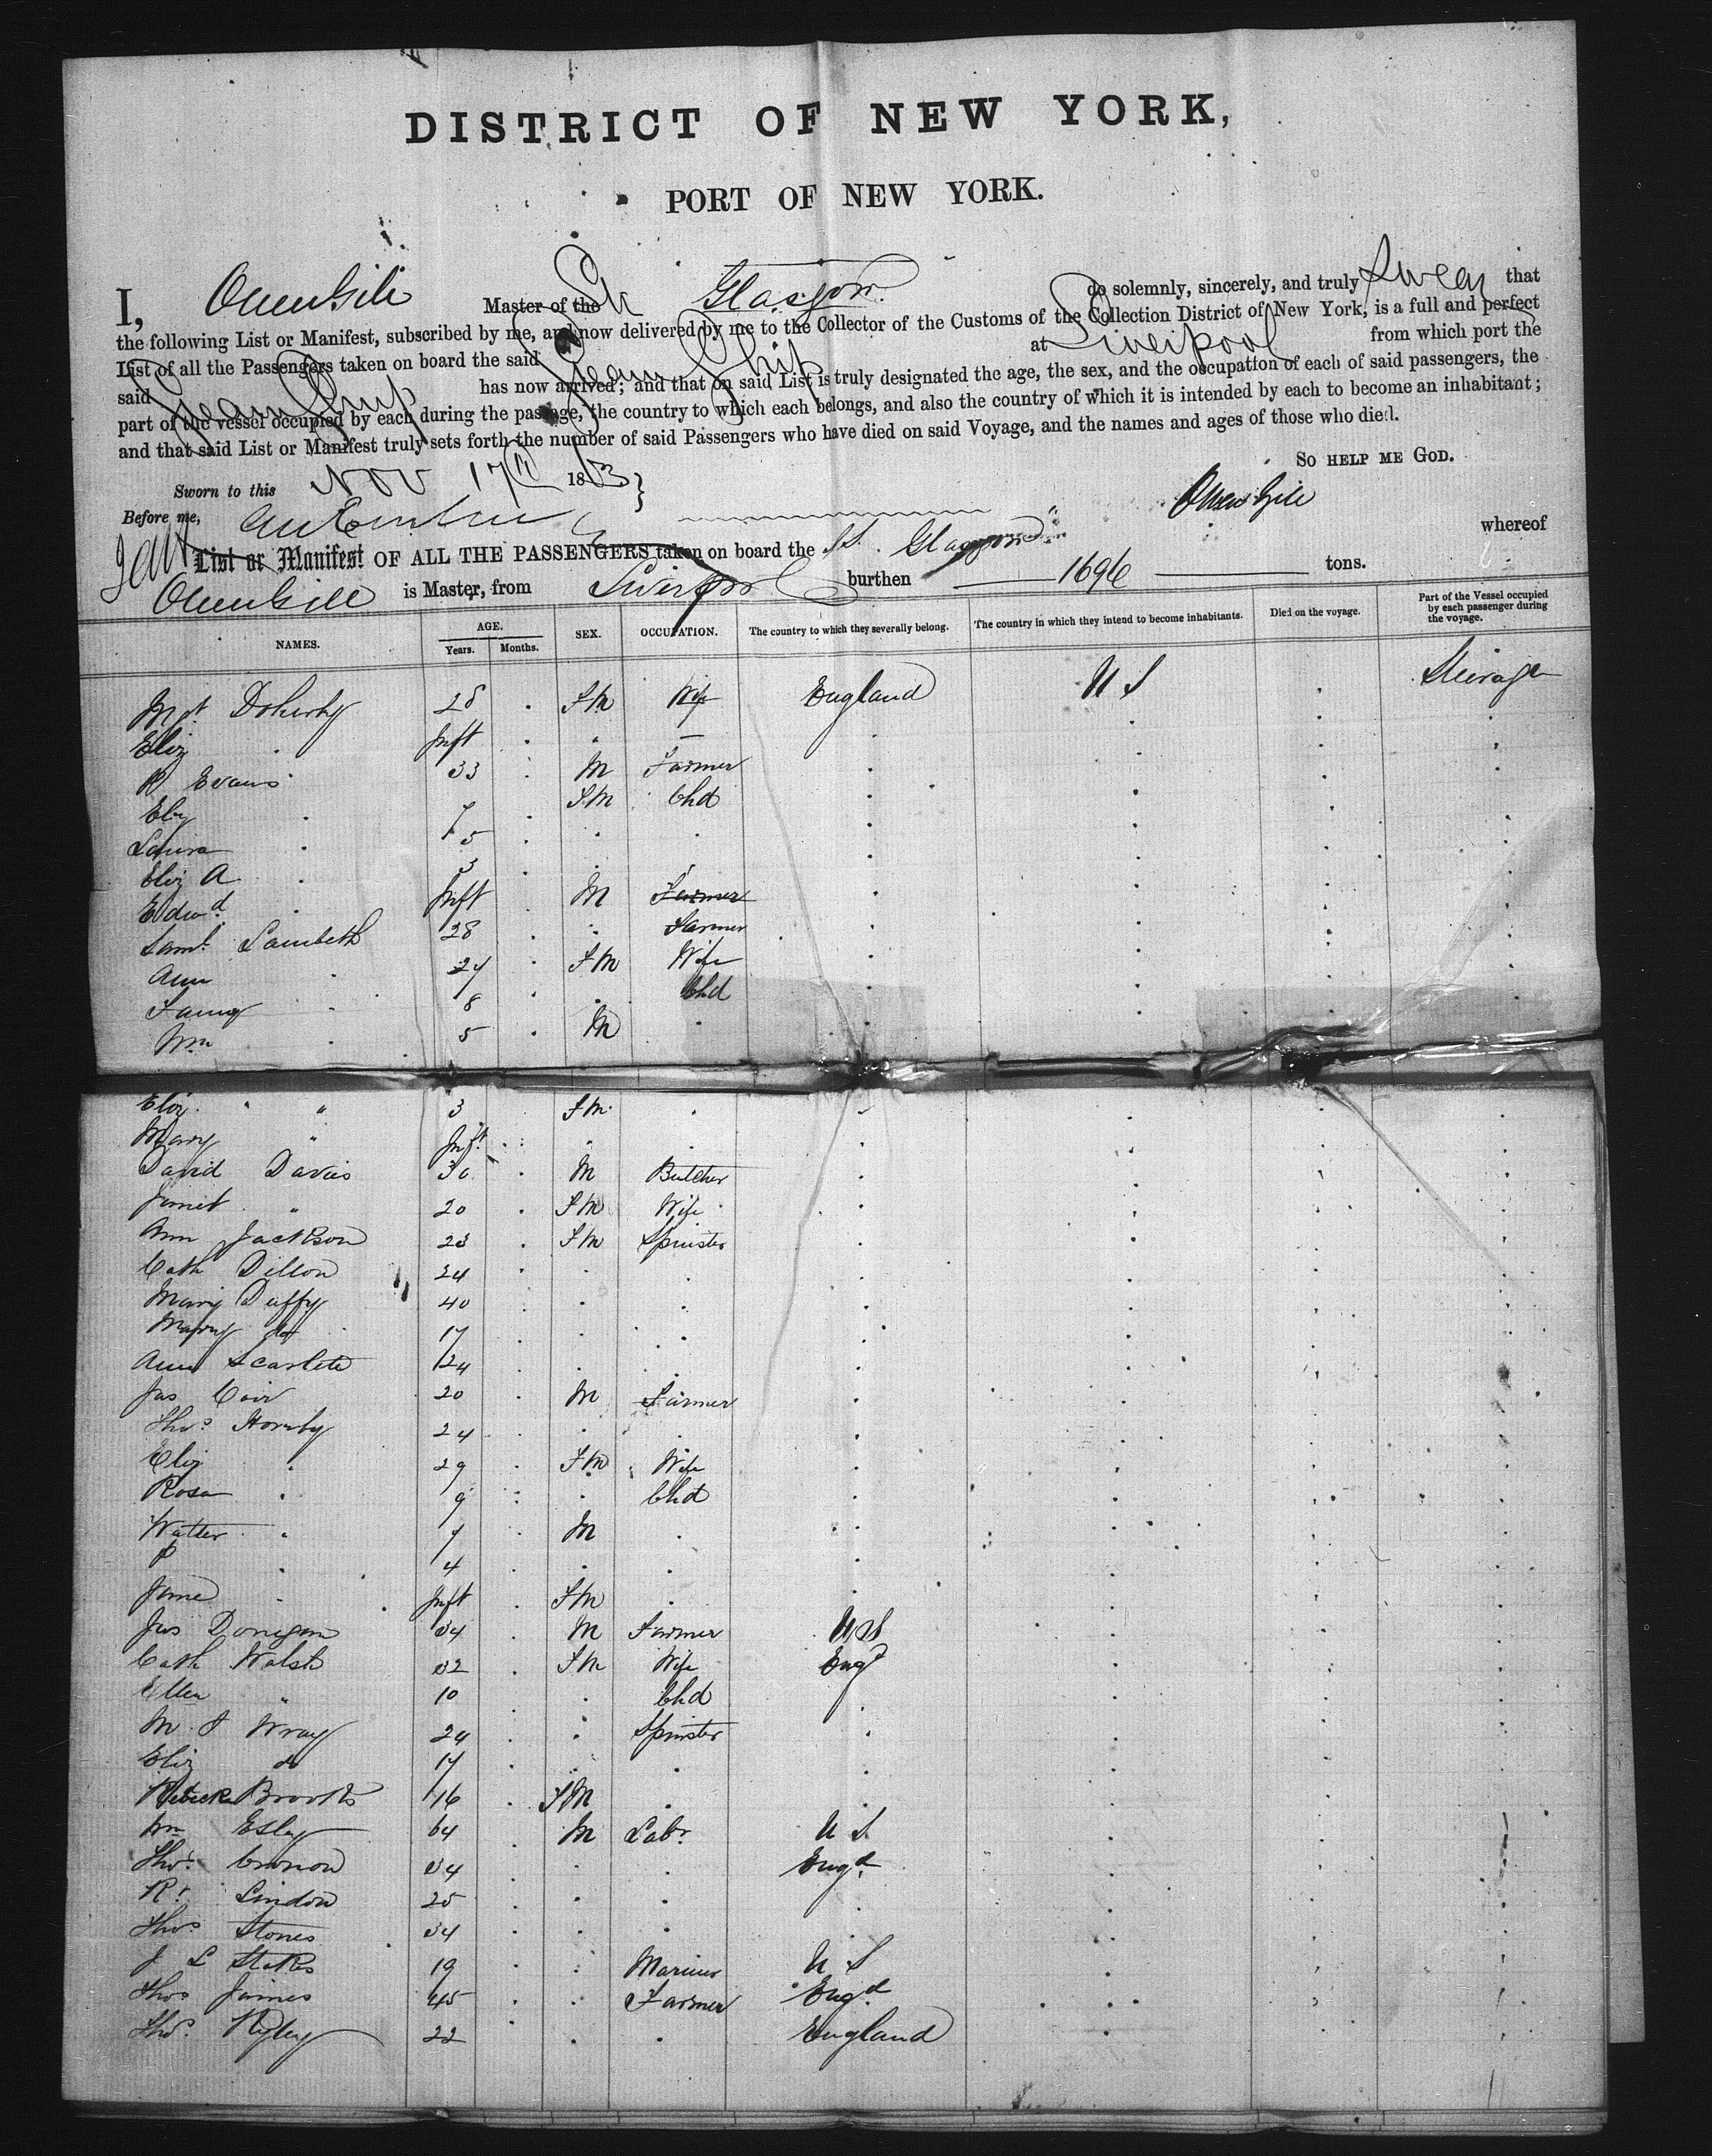 DISTRICT OF NEW YORK,
PORT OF NEW YORK.
I, Owen Gill Master of the SS Glasgow. do solemnly, sincerely, and truly swear that
the following List or Manifest, subscribed by me, and now delivered by me to the Collector of the Customs of the Collection District of New York, is a full and perfect
List of all the Passengers taken on board the said Steam Ship at Liverpool from which port the
said Steam Ship has now arrived; and that on said List is truly designated the age, the sex, and the occupation of each of said passengers, the
part of the vessel occupied by each during the passage, the country to which each belongs, and also the country of which it is intended by each to become an inhabitant;
and that said List or Manifest truly sets forth the number of said Passengers who have died on said Voyage, and the names and ages of those who died.
So help me God.
Sworn to this Nov 17th 1863
Owen Gill
Before me,
List or Manifest OF ALL THE PASSENGERS taken on board the SS. Glasgow whereof
Owen Gill is Master, from Liverpool burthen 1696 tons.
NAMES. AGE. Years. Months. SEX. OCCUPATION. The country to which they severally belong. The country in which they intend to become inhabitants. Died on the voyage. Part of the Vessel occupied by each passenger during the voyage.
Mgt Doherty 28 . FM Wife England U S . Steirage
Eliz . Inft . . — . . . .
R Evans 33 . M Farmer . . . .
Eliz . 7 . FM Chd . . . .
Laura . 5 . . . . . . .
Eliz A . 3 . . . . . . .
Edwd . Inft . M Farmer . . . .
Saml Lambeth 28 . . Farmer . . . .
Ann . 24 . FM Wife . . . .
Fanny . 8 . . Chd . . . .
Wm . 5 . M . . . . .
Eliz. " 3 FM . . . . .
Mary " Inft . " . . . . .
David Davies 30 . M Butcher . . . .
Jannet " 20 . FM Wife . . . .
Ann Jackson 23 . FM Spinster . . . .
Cath Dillon 24 . . . . . . .
Mary Duffy 40 . . . . . . .
Mary do 17 . . . . . . .
Ann Scarlett 24 . . . . . . .
Jas Coir 20 . M Farmer . . . .
Thos Hornby 24 . . . . . . .
Eliz . 29 . FM Wife . . . .
Rosa . 9 . . Chd . . . .
Walter . 7 . M . . . . .
P . 4 . . . . . . .
Jane . Inft . FM . . . . .
Jas Donegan 34 . M Farmer U S . . .
Cath Walsh 32 . FM Wife Engd . . .
Ellen " 10 . . Chd . . . .
M. J Wray 24 . . Spinster . . . .
Eliz do 17 . . . . . . .
Rebecka Brooks 16 . FM . . . . .
Wm Esley 64 . M Labr U S . . .
Thos Cronon 34 . . . Engd . . .
Rt Lindon 25 . . . . . . .
Thos Stones 34 . . . . . . .
J L Stokes 19 . . Mariner U S . . .
Thos James 45 . . Farmer Engd . . .
Thos. Ryley 22 . . . England . . .